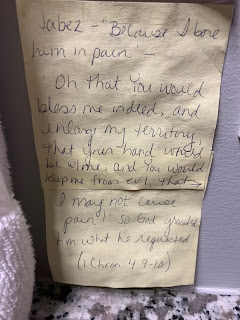 Jabez - "Because I bore
him in pain" -
"Oh that You would
bless me indeed, and
enlarg my territory,
that your hand would
be w/me, and You would
keep me from evil, that →
I may not cause
pain"! So God granted
him what he requested
(1 Chron 4 9-10)